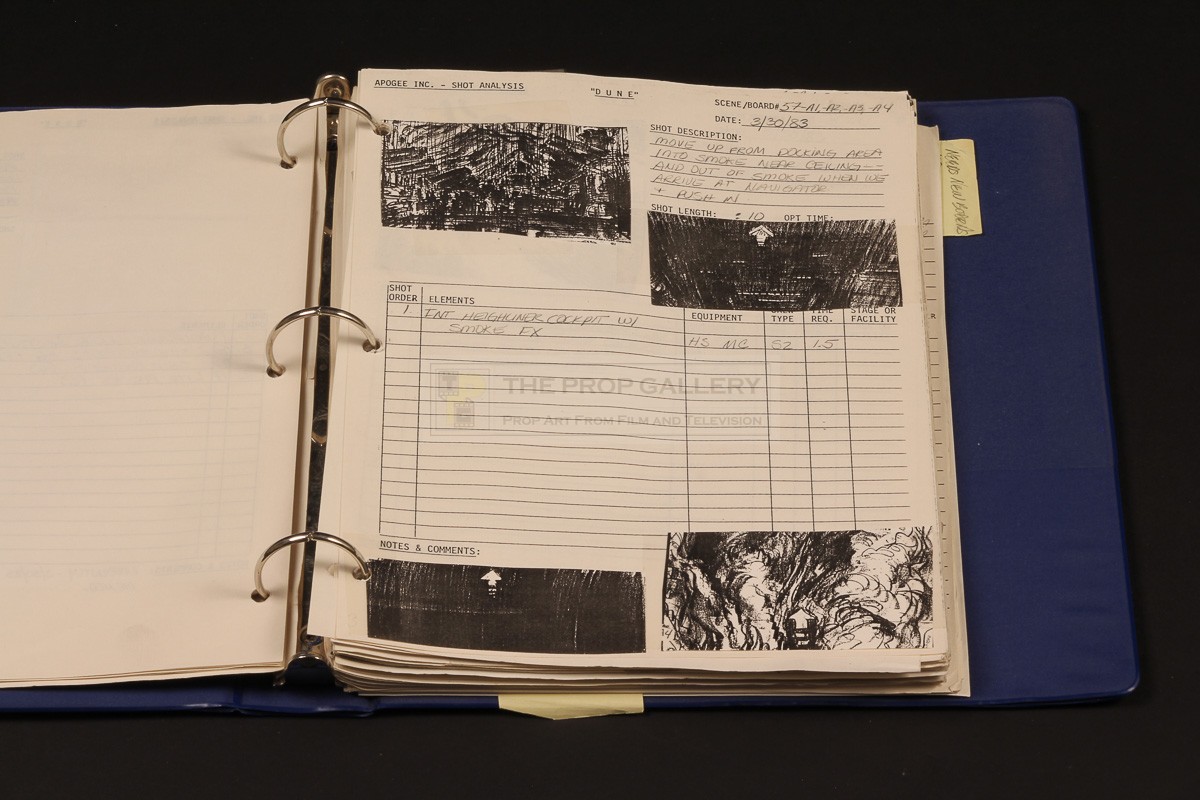 APOGEE INC. - SHOT ANALYSIS
"DUNE"
SCENE/BOARD# 57-A1,-A2,-A3,-A4
DATE: 3/30/83
SHOT DESCRIPTION:
MOVE UP FROM DOCKING AREA
INTO SMOKE NEAR CEILING--
AND OUT OF SMOKE WHEN WE
ARRIVE AT NAVIGATOR
+ PUSH IN
SHOT LENGTH: :10 OPT TIME:
SHOT ORDER
ELEMENTS
EQUIPMENT
TYPE
REQ.
STAGE OR FACILITY
1. INT HEIGHLINER COCKPIT W/
SMOKE FX
HS MC
1.5
THE PROP GALLERY
PROP ART FROM FILM AND TELEVISION
NOTES & COMMENTS:
NEEDS NEW BOARDS